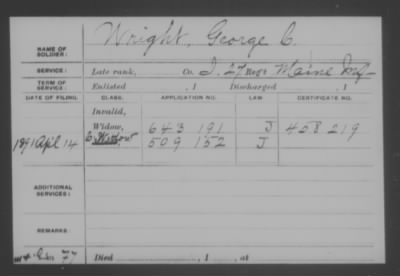 NAME OF SOLDIER: Wright, George C.
SERVICE: Late rank, Co. I, 27 Reg't Maine Inf
TERM OF SERVICE: Enlisted , 1 Discharged , 1
DATE OF FILING. CLASS. APPLICATION NO. LAW. CERTIFICATE NO.
Invalid,
Widow, 643 191 J 458 219
1891 Apl 14 C. Widow 509 152 J
ADDITIONAL SERVICES:
REMARKS:
77 Died , 1 , at